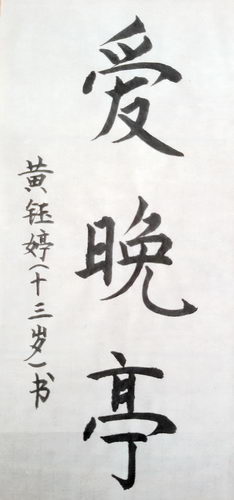 爱晚亭
黄钰婷(十三岁)书